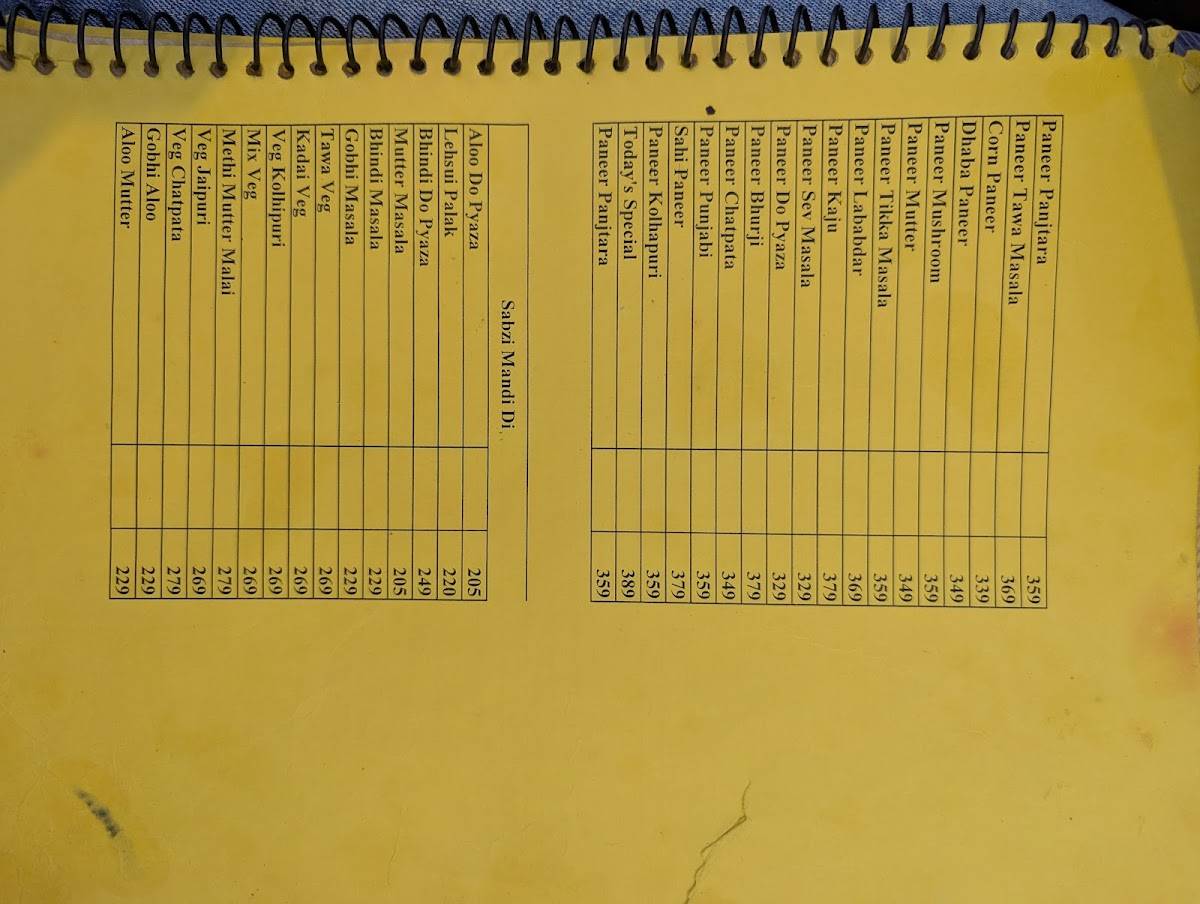 Paneer Panjtara 359
Paneer Tawa Masala 369
Corn Paneer 339
Dhaba Paneer 349
Paneer Mushroom 359
Paneer Mutter 349
Paneer Tikka Masala 359
Paneer Lababdar 369
Paneer Kaju 379
Paneer Sev Masala 329
Paneer Do Pyaza 329
Paneer Bhurji 379
Paneer Chatpata 349
Paneer Punjabi 359
Sahi Paneer 379
Paneer Kolhapuri 359
Today's Special 389
Paneer Panjtara 359
Sabzi Mandi Di
Aloo Do Pyaza 205
Lehsui Palak 220
Bhindi Do Pyaza 249
Mutter Masala 205
Bhindi Masala 229
Gobhi Masala 229
Tawa Veg 269
Kadai Veg 269
Veg Kolhipuri 269
Mix Veg 269
Methi Mutter Malai 279
Veg Jaipuri 269
Veg Chatpata 279
Gobhi Aloo 229
Aloo Mutter 229